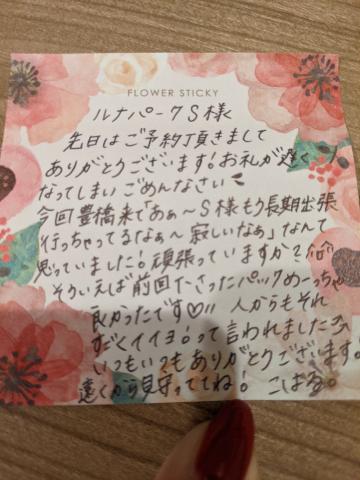 FLOWER STICKY
ルナパークS様
先日はご予約頂きまして
ありがとうございます!お礼が遅く
なってしまいごめんなさい
今回豊橋来て「あぁ〜S様もう長期出張
行っちゃってるなぁ〜寂しいなぁ」なんて
思っていました!頑張っていますか?(^^)
そういえば前回下さったパックめーっちゃ
良かったです♡!! 人からもそれ
すごくイイヨ!って言われました
いつもいつもありがとうございます!
遠くから見守っててね! こはる。